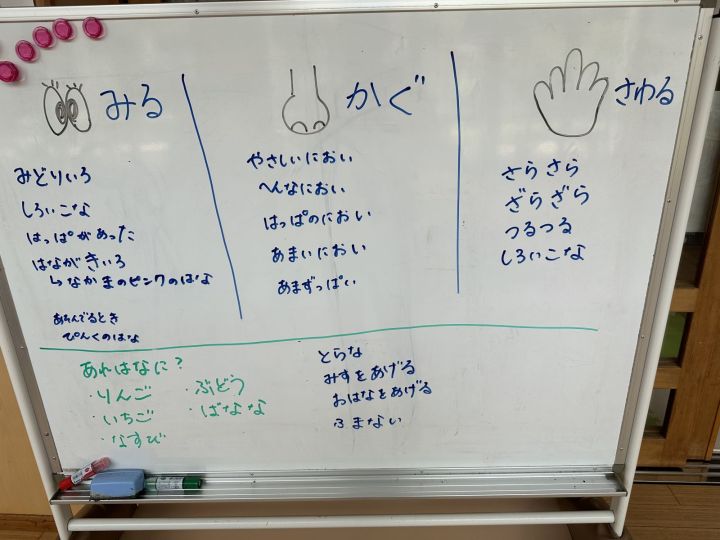 みる
みどりいろ
しろいこな
はっぱがあった
はながきいろ
↳なかまのピンクのはな
あそんでるとき
ぴんくのはな
かぐ
やさしいにおい
へんなにおい
はっぱのにおい
あまいにおい
あまずっぱい
さわる
さらさら
ざらざら
つるつる
しろいこな
あれはなに?
・りんご
・いちご
・なすび
・ぶどう
・ばなな
とらな
みずをあげる
おはなをあげる
ふまない